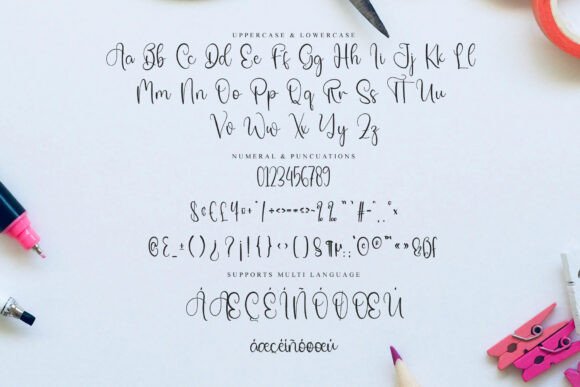 UPPERCASE & LOWERCASE
Aa Bb Cc Dd Ee Ff Gg Hh Ii Jj Kk Ll
Mm Nn Oo Pp Qq Rr Ss Tt Uu
Vv Ww Xx Yy Zz
NUMERAL & PUNCUATIONS
0123456789
$¢£¥
()¿?¡!{}‹›()§¶µ
SUPPORTS MULTI LANGUAGE
ÁÆÇÉÍÑÓØŒÚ
áæçéíñóøœú